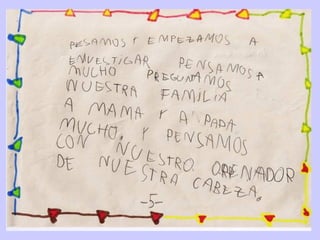 PESAMOS Y EMPEZAMOS A
ENVESTIGAR PENSAMOS A
MUCHO PREGUNTAMOS
NUESTRA FAMILIA
A MAMA Y A PAPA
MUCHO. Y PENSAMOS
CON NUESTRO ORENADOR
DE NUESTRA CABEZA.
-5-